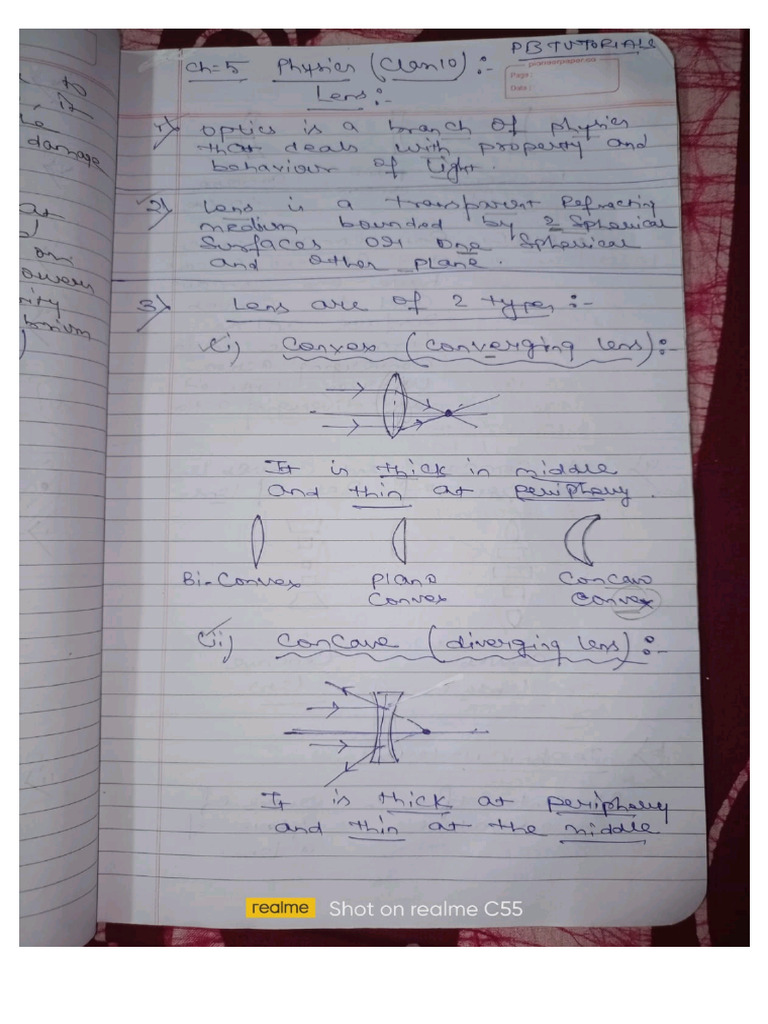 PB TUTORIALS
Ch=5 Physics (Class 10) :-
pioneerpaper.co
Page :
Date :
Lens:-
1) Optics is a branch of physics
that deals with property and
behaviour of light.
2) Lens is a transparent Refracting
medium bounded by 2 Spherical
Surfaces or one Spherical
and other plane.
3) Lens are of 2 types :-
i) Convex (Converging lens) :-
It is thick in middle
and thin at periphery.
Bi-Convex
Plano
Convex
Concavo
Convex
ii) Concave (diverging lens) :-
It is thick at periphery
and thin at the middle
to
it
damage
at
on
owers
rity
brium
realme Shot on realme C55